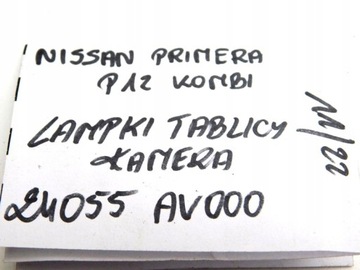 NISSAN PRIMERA
P12 KOMBI
LAMPKI TABLICY
KAMERA
24055 AV000
11/22